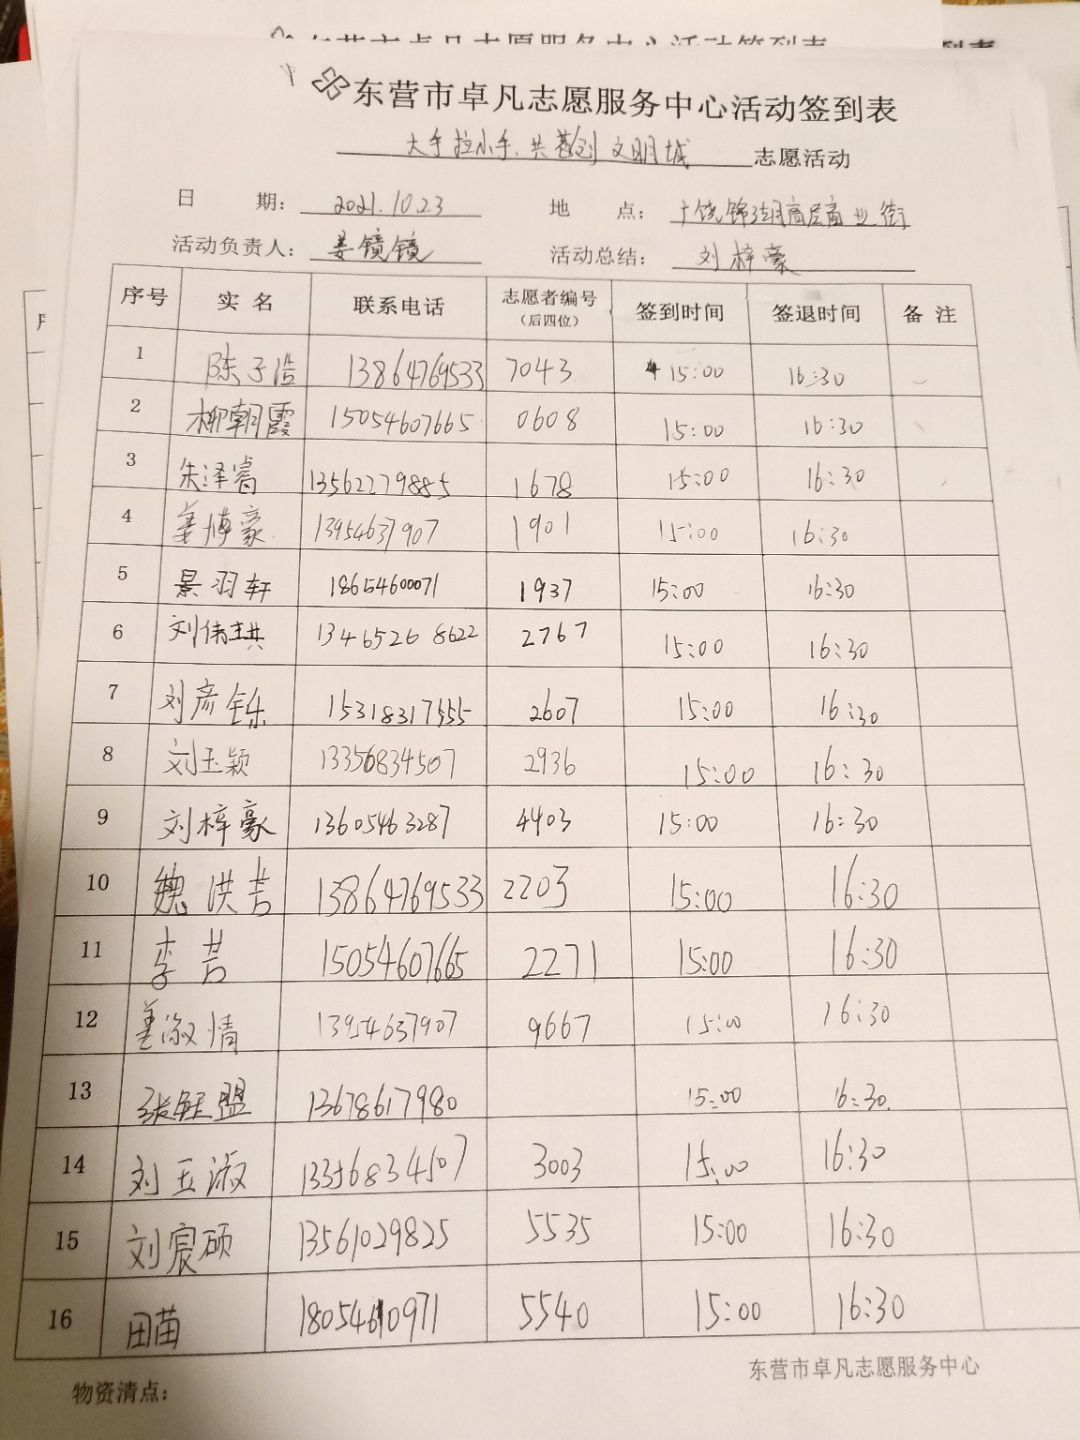 东营市卓凡志愿服务中心活动签到表
大手拉小手、共 创文明城 志愿活动
日 期: 2021.10.23 地 点: 广饶锦湖商业街
活动负责人: 姜镜镜 活动总结: 刘梓豪
序号 实 名 联系电话 志愿者编号(后四位) 签到时间 签退时间 备 注
1 陈子浩 13864769533 7043 15:00 16:30
2 柳朝霞 15054607665 0608 15:00 16:30
3 朱泽睿 13562279885 1678 15:00 16:30
4 姜博豪 13954637907 1901 15:00 16:30
5 景羽轩 18654600071 1937 15:00 16:30
6 刘伟琪 13465268622 2767 15:00 16:30
7 刘彦铄 15318317555 2607 15:00 16:30
8 刘玉颖 13356834507 2936 15:00 16:30
9 刘梓豪 13605463287 4403 15:00 16:30
10 魏洪吉 13864769533 2203 15:00 16:30
11 李苦 15054607665 2271 15:00 16:30
12 姜淑情 13954637907 9667 15:00 16:30
13 张 盟 13678617980 15:00 16:30
14 刘玉淑 13356834507 3003 15:00 16:30
15 刘宸硕 13561029825 5535 15:00 16:30
16 田苗 18054610971 5540 15:00 16:30
物资清点:
东营市卓凡志愿服务中心